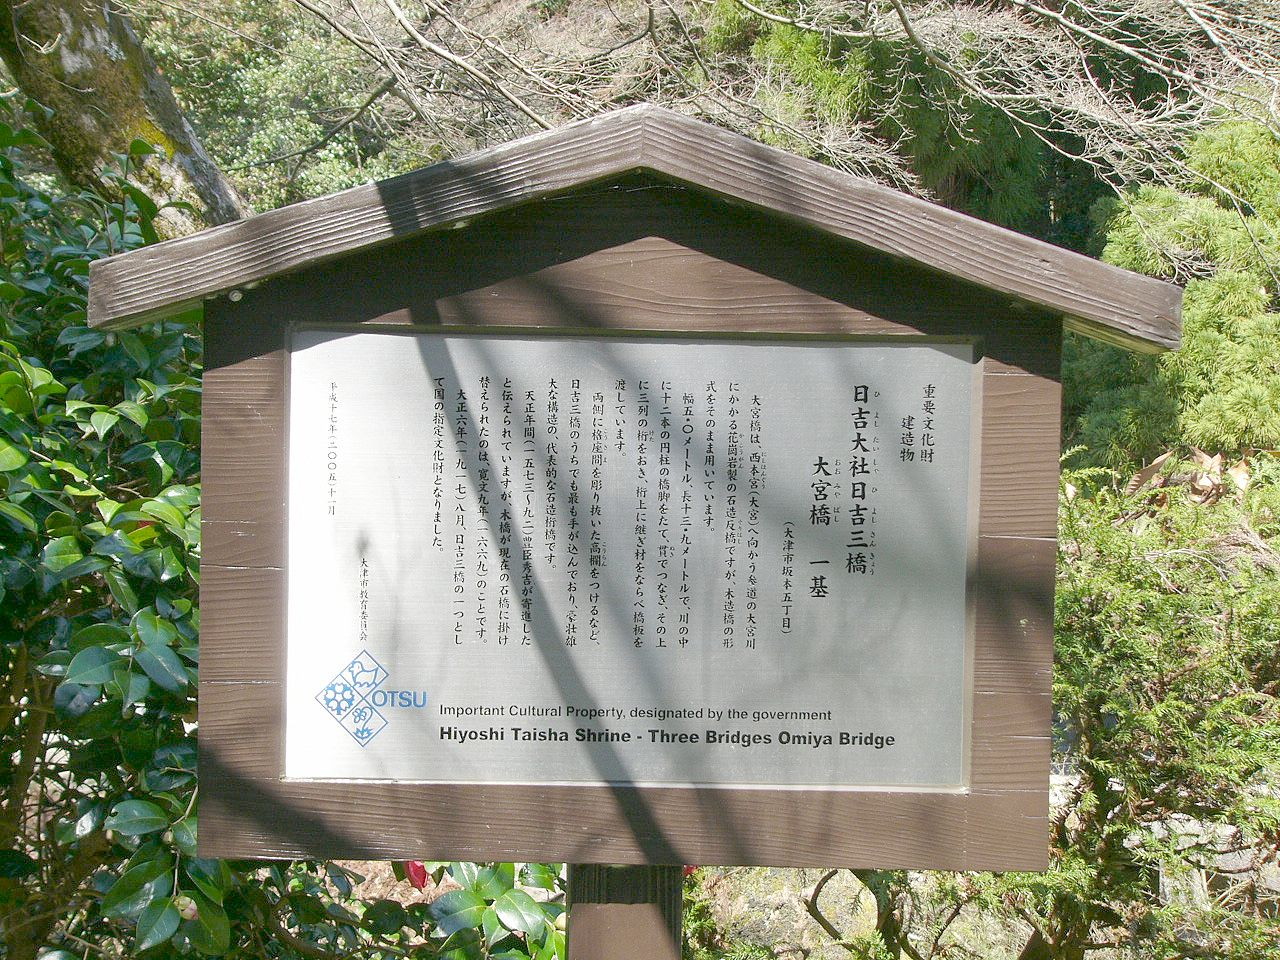 重要文化財
建造物
日吉大社日吉三橋
ひよしたいしゃひよしさんきょう
大宮橋 一基
おおみやばし
(大津市坂本五丁目)
大宮橋は、西本宮(大宮)へ向かう参道の大宮川
にかかる花崗岩製の石造反橋ですが、木造橋の形
式をそのまま用いています。
幅五・〇メートル、長十三・九メートルで、川の中
に十二本の円柱の橋脚をたて、貫でつなぎ、その上
に三列の桁をおき、桁上に継ぎ材をならべ橋板を
渡しています。
両側に格座間を彫り抜いた高欄をつけるなど、
日吉三橋のうちでも最も手が込んでおり、豪壮雄
大な構造の、代表的な石造桁橋です。
天正年間(一五七三~九二)豊臣秀吉が寄進した
と伝えられていますが、木橋が現在の石橋に掛け
替えられたのは、寛文九年(一六六九)のことです。
大正六年(一九一七)八月、日吉三橋の一つとし
て国の指定文化財となりました。
大津市教育委員会
平成十七年(二〇〇五)十一月
OTSU
Important Cultural Property, designated by the government
Hiyoshi Taisha Shrine - Three Bridges Omiya Bridge